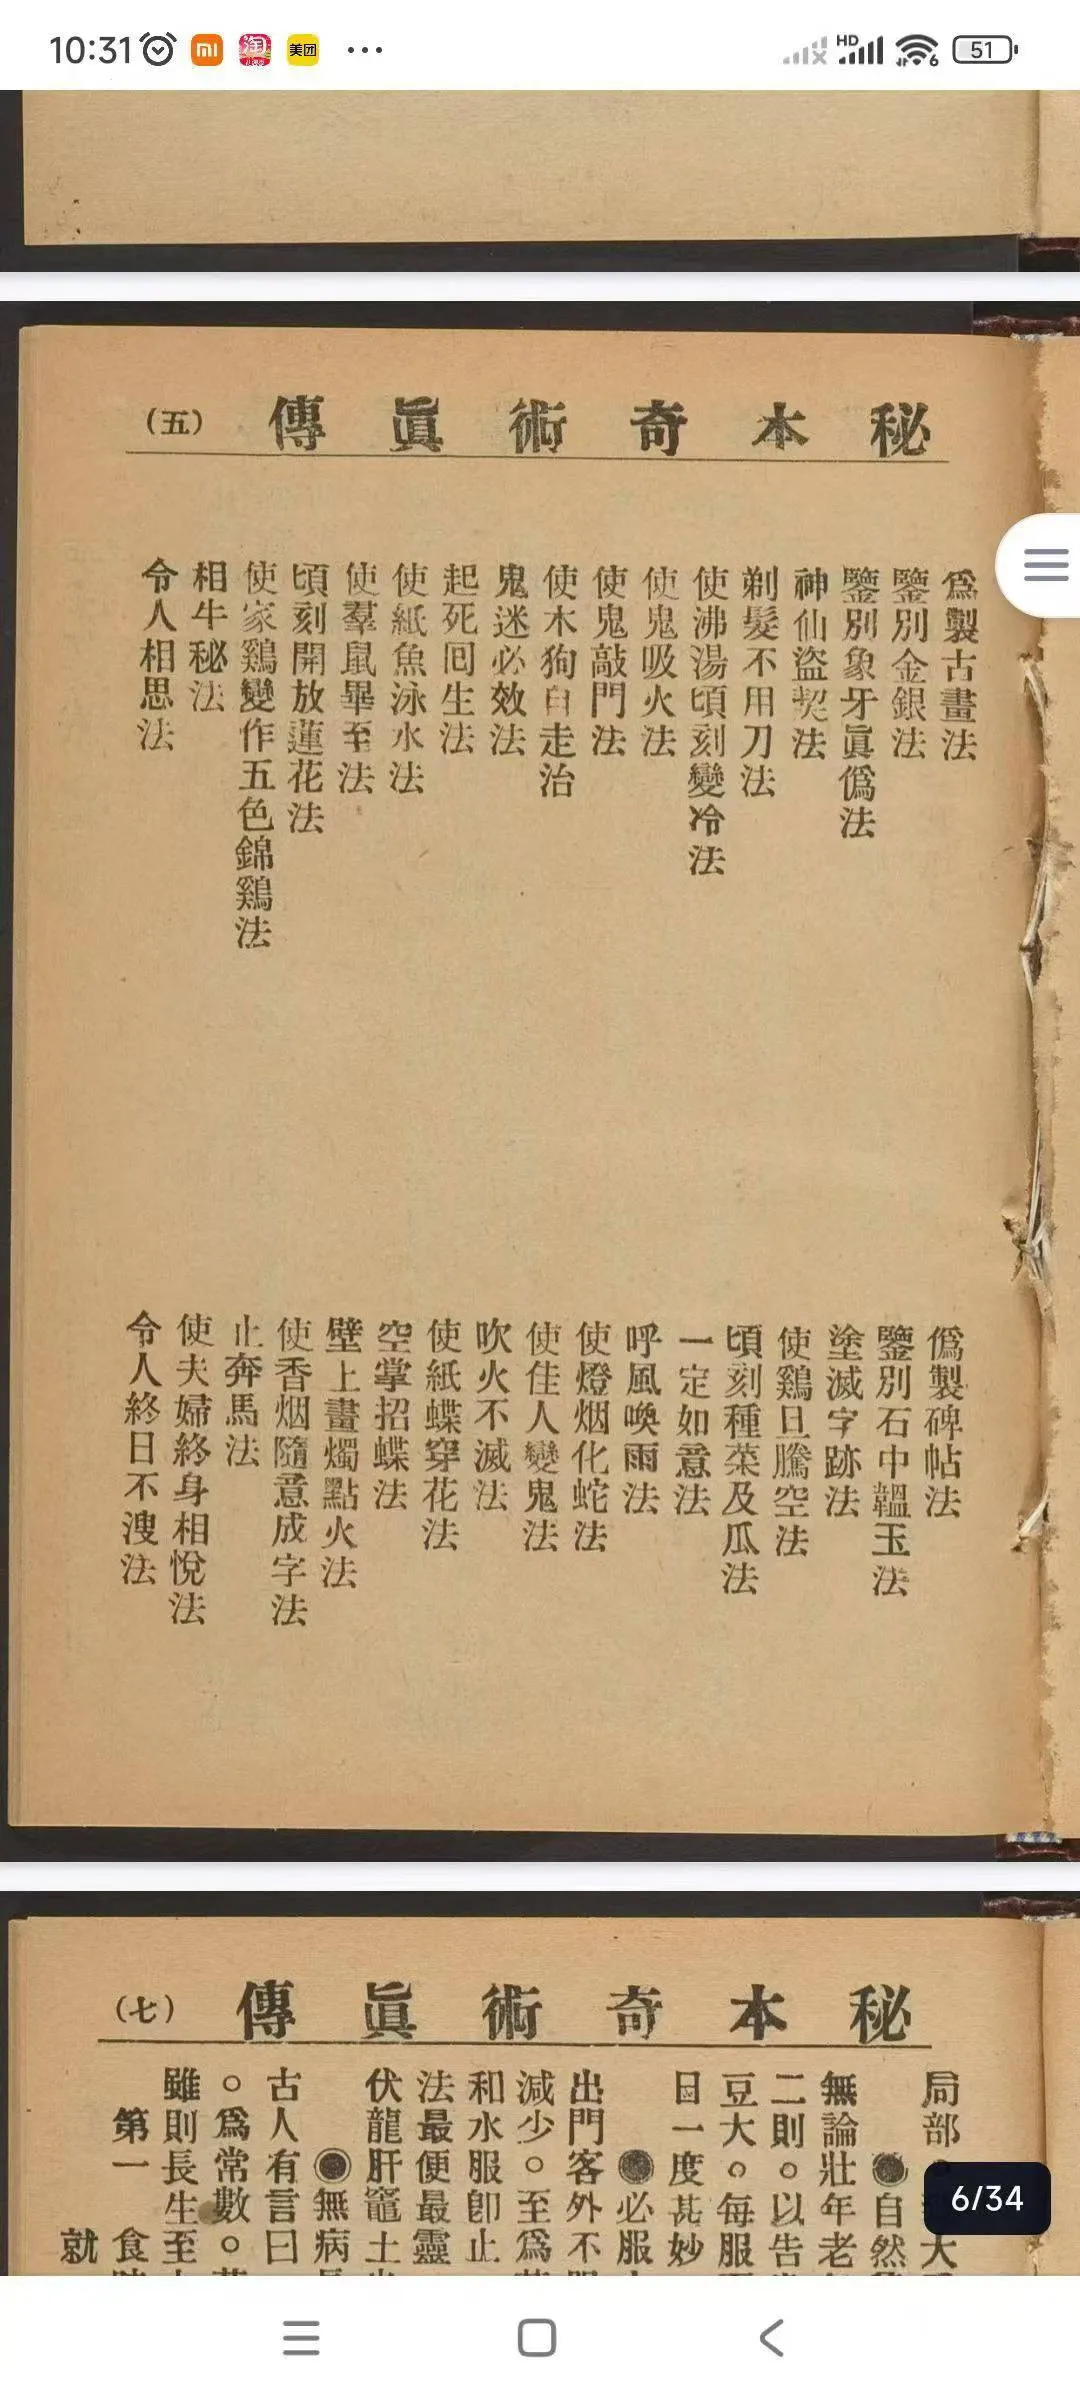 10:31 淘 美团 HD 6 51
秘本奇術眞傳 (五)
爲製古畫法
鑒別金銀法
鑒別象牙眞僞法
神仙盜契法
剃髮不用刀法
使沸湯頃刻變冷法
使鬼吸火法
使鬼敲門法
使木狗自走治
鬼迷必效法
起死囘生法
使紙魚泳水法
使羣鼠畢至法
頃刻開放蓮花法
使家鷄變作五色錦鷄法
相牛秘法
令人相思法
僞製碑帖法
鑒別石中韞玉法
塗滅字跡法
使鷄旦騰空法
頃刻種菜及瓜法
一定如意法
呼風喚雨法
使燈烟化蛇法
使佳人變鬼法
吹火不滅法
使紙蝶穿花法
空掌招蝶法
壁上畫燭點火法
使香烟隨意成字法
止奔馬法
使夫婦終身相悅法
令人終日不溲法
秘本奇術眞傳 (七)
局部。大
●自然
無論壯年老
二則。以告
豆大。每服
日一度甚妙
●必服
出門客外不
減少。至爲
和水服卽止
法最便最靈
伏龍肝竈土
●無病
古人有言曰
。爲常數。
雖則長生至
第一食
就
6/34